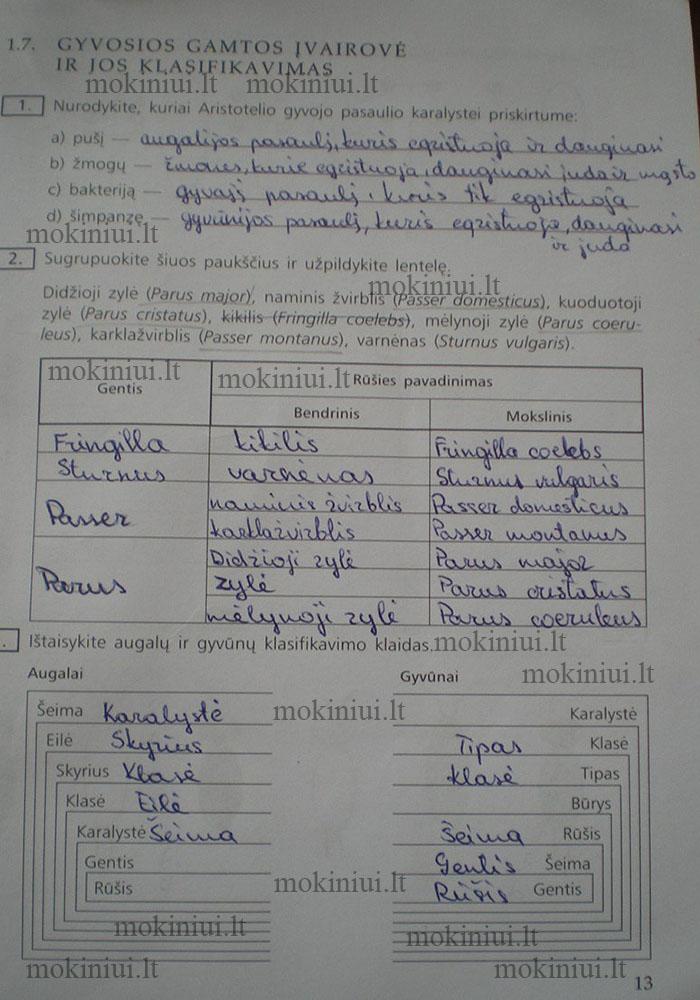 1.7. GYVOSIOS GAMTOS ĮVAIROVĖ
IR JOS KLASIFIKAVIMAS
mokiniui.lt mokiniui.lt
1. Nurodykite, kuriai Aristotelio gyvojo pasaulio karalystei priskirtume:
a) pušį — augalijos pasaulį, kuris egzistuoja ir dauginasi
b) žmogų — žmones, kurie egzistuoja, dauginasi juda ir mąsto
c) bakteriją — gyvąjį pasaulį, kuris tik egzistuoja
d) šimpanzę — gyvūnijos pasaulį, kuris egzistuoja, dauginasi
ir juda
mokiniui.lt
2. Sugrupuokite šiuos paukščius ir užpildykite lentelę.
mokiniui.lt
Didžioji zylė (Parus major), naminis žvirblis (Passer domesticus), kuoduotoji
zylė (Parus cristatus), kikilis (Fringilla coelebs), mėlynoji zylė (Parus coeru-
leus), karklažvirblis (Passer montanus), varnėnas (Sturnus vulgaris).
mokiniui.lt mokiniui.lt
Gentis Rūšies pavadinimas
Bendrinis Mokslinis
Fringilla kikilis Fringilla coelebs
Sturnus varnėnas Sturnus vulgaris
Passer naminis žvirblis Passer domesticus
karklažvirblis Passer montanus
Parus Didžioji zylė Parus major
zylė Parus cristatus
mėlynoji zylė Parus coeruleus
. Ištaisykite augalų ir gyvūnų klasifikavimo klaidas. mokiniui.lt
Augalai Gyvūnai mokiniui.lt
Šeima Karalystė mokiniui.lt Karalystė
Eilė Skyrius Tipas Klasė
Skyrius Klasė klasė Tipas
Klasė Eilė Būrys
Karalystė Šeima Šeima Rūšis
Gentis Gentis Šeima
Rūšis mokiniui.lt Rūšis Gentis
mokiniui.lt mokiniui.lt
mokiniui.lt mokiniui.lt
13